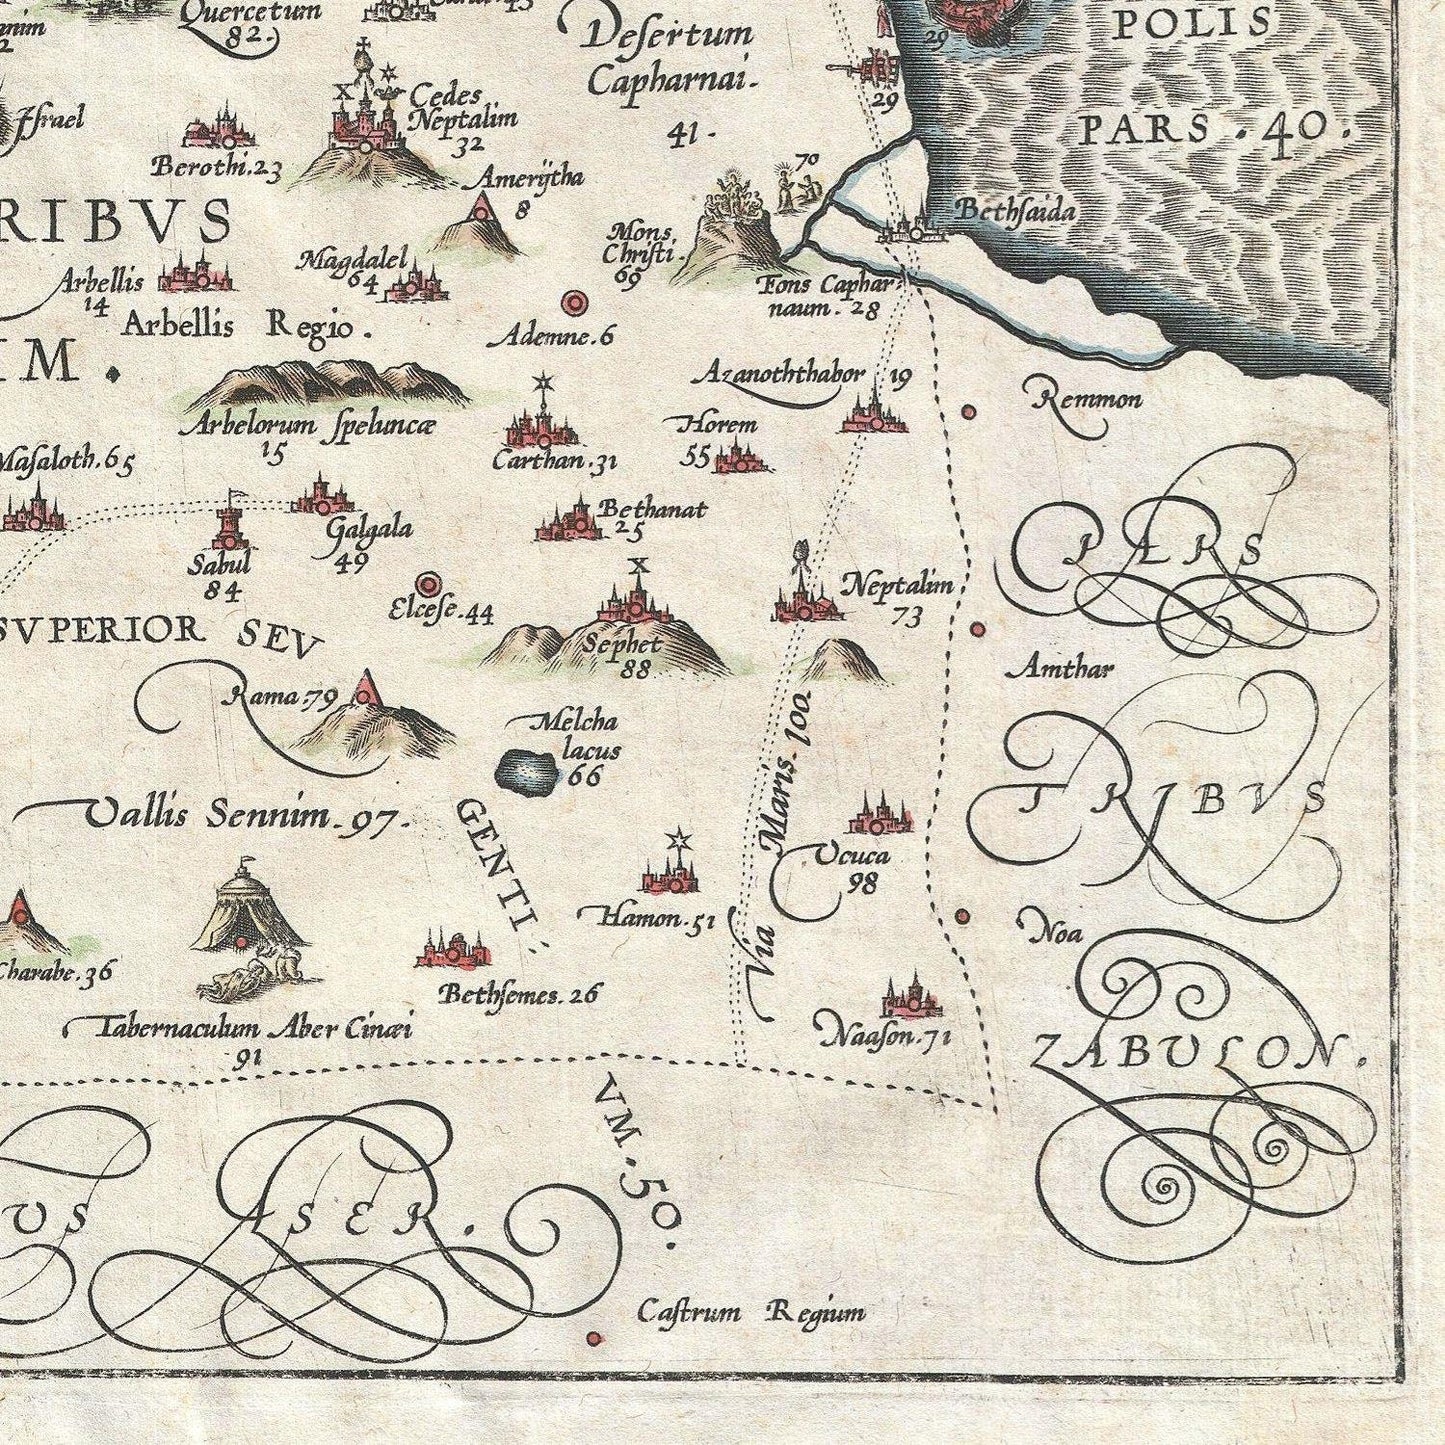 Quercetum
82.
Desertum
Capharnai.
41.
29
29
POLIS
PARS . 40 .
Israel
Berothi.23
Cedes
Neptalim
32
Amerijtha
8
70
Bethsaida
RIBVS
Mons
Christi.
69
Magdalel
64
Arbellis
14
Arbellis Regio .
Fons Caphar-
naum. 28
Ademne.6
IM .
Azanoththabor 19
Remmon
Arbelorum speluncæ
15
Carthan.31
Horem
55
Masaloth.65
Galgala
49
Bethanat
25
Sabul
84
Elcese.44
Neptalim
73
PARS
SVPERIOR SEV
Sephet
88
Amthar
Rama.79
Melcha
lacus
66
Via Maris. 100.
TRIBVS
Vallis Sennim.97.
GENTI-
Ucuca
98
Hamon.51
Noa
Charabe.36
Bethsemes.26
Tabernaculum Aber Cinæi
91
Naason.71
ZABULON.
VM.50.
US ASER.
Castrum Regium